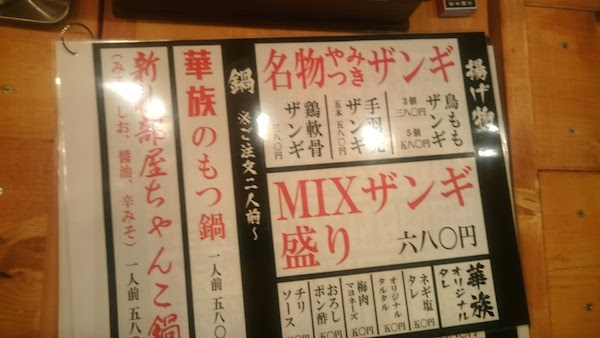 揚げ物
名物やみつきザンギ
鳥もも
ザンギ
3個
三八〇円
5個
五八〇円
手羽先
ザンギ
五本 五八〇円
鶏軟骨
ザンギ
三八〇円
MIXザンギ
盛り 六八〇円
華族
オリジナル
タレ
ネギ塩
タレ
五〇円
オリジナル
タルタル
五〇円
梅肉
マヨネーズ
五〇円
おろし
ポン酢
五〇円
チリ
ソース
鍋 ※ご注文二人前〜
華族のもつ鍋 一人前 五八〇
部屋ちゃんこ鍋
醤油、辛みそ） 一人前 五八